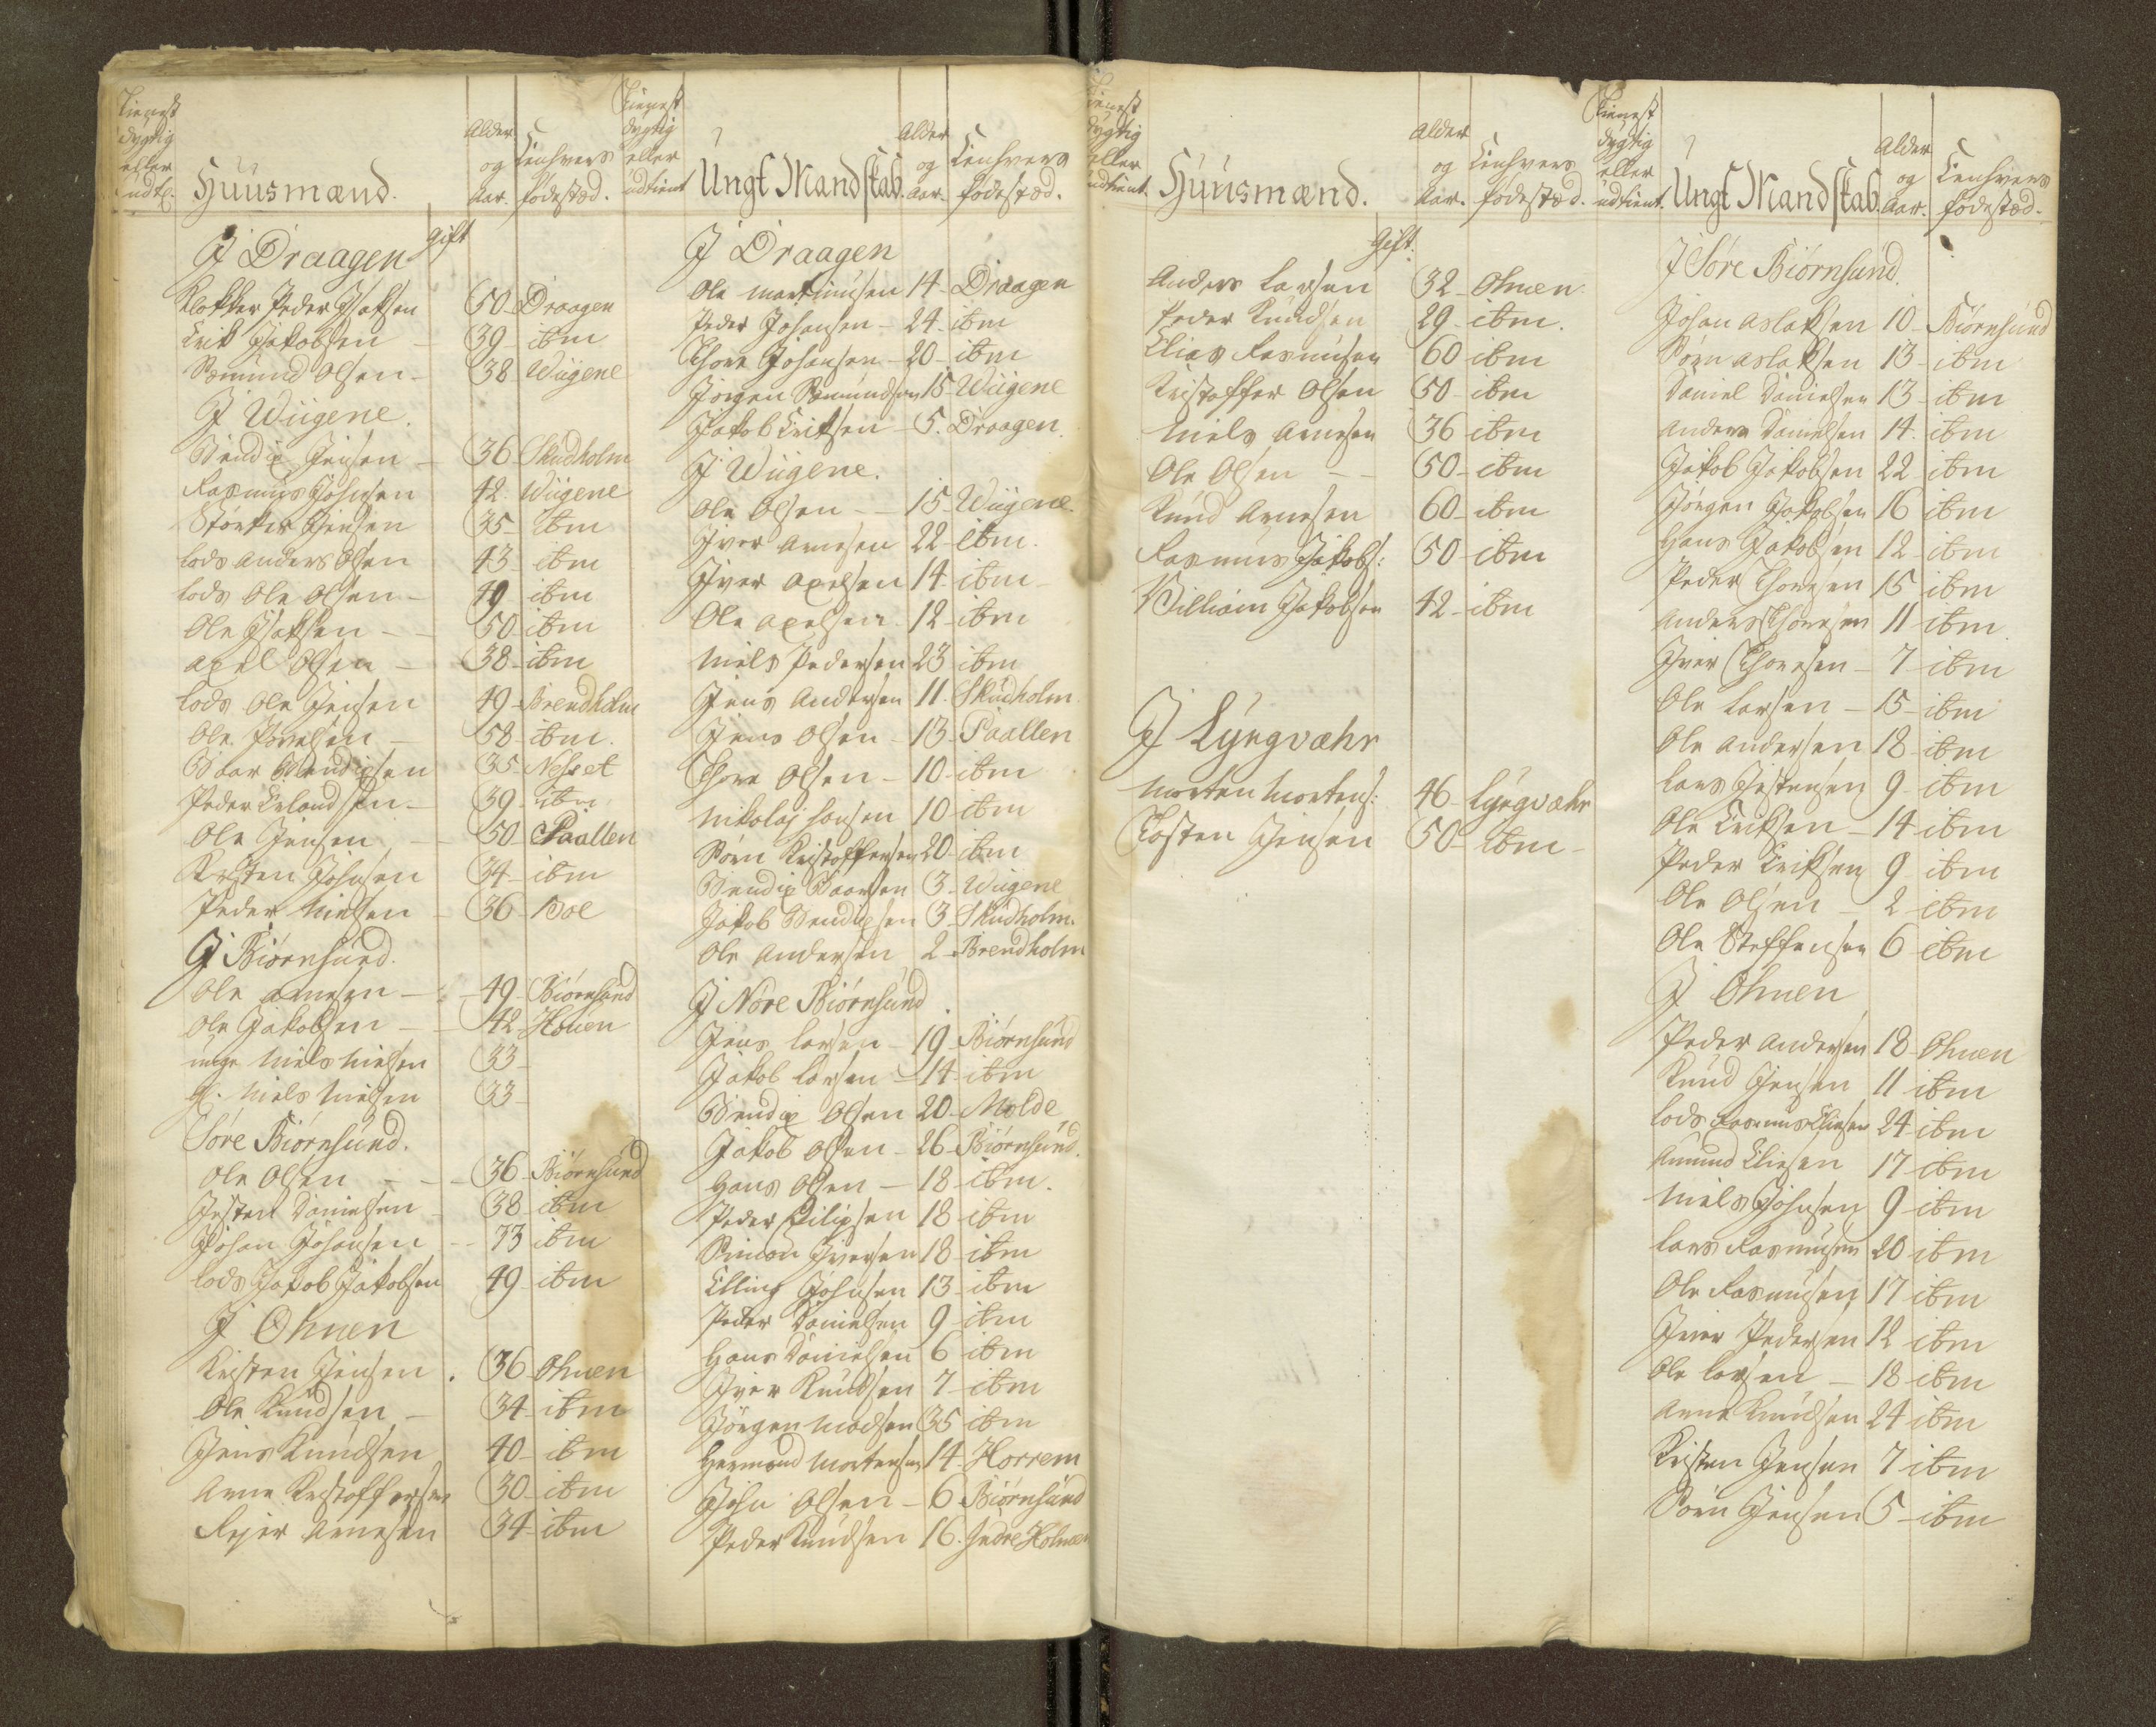 Tienst dygtig eller udt:
Huusmænd.
Alder og Aar.
Enhvers fødestæd.
Gift
J Draagen
Klokker Peder Isaksen 50 Draagen
Erik Jakobsen 39 ibm
Semund Olsen 38 Wiigene
J Wiigene.
Bendix Jensen 36 Skudholm
Rasmus Johnsen 42 Wiigene
Størker Jensen 35 ibm
Lods Anders Olsen 43 ibm
Lods Ole Olsen 49 ibm
Ole Isaksen 50 ibm
Axel Olsen 38 ibm
Lods Ole Jensen 49 Brendholm
Ole Povelsen 58 ibm.
Baar Bendixsen 35 Nesset
Peder Erlandsen 39 ibm
Ole Jensen 50 Paallen
Kristen Johnsen 34 ibm
Peder Nielsen 36 Boe
J Biørnsund.
Ole Arnesen 49 Biørnsund
Ole Jakobsen 42 Houen
unge Niels Nielsen 33
gl. Niels Nielsen 33
Søre Biørnsund.
Ole Olsen 36 Biørnsund
Josten Danielsen 38 ibm
Johan Johansen 33 ibm
Lods Jakob Jakobsen 49 ibm
J Ohnen
Kristen Jensen 36 Ohnen
Ole Knudsen 34 ibm
Jens Knudsen 40 ibm
Arne Kristoffersen 30 ibm
Rejer Arnesen 34 ibm
Tienest dygtig eller udtient
Ungt Mandskab.
Alder og Aar.
Enhvers fødestæd.
J Draagen
Ole Martinusen 14 Draagen
Peder Johansen 24 ibm
Thore Johansen 20 ibm
Jørgen Semundsen 15 Wiigene
Jakob Eriksen 5. Draagen.
J Wiigene.
Ole Olsen 15 Wiigene.
Iver Arnesen 22 ibm.
Iver Axelsen 14 ibm
Ole Axelsen 12 ibm
Niels Pedersen 23 ibm
Jens Andersen 11. Skudholm
Jens Olsen 13 Paallen
Thore Olsen 10 ibm
Nikolaj Hansen 10 ibm
Sørn Kristoffersen 20 ibm
Bendix Baarsen 3 Wiigene
Jakob Bendixsen 3 Skudholm.
Ole Andersen 2 Brendholm
J Nøre Biørnsund
Jens Larsen 19 Biørnsund
Jakob Larsen 14 ibm
Bendix Olsen 20 Molde
Jakob Olsen 26 Biørnsund.
Hans Olsen 18 ibm.
Peder Filipsen 18 ibm
Simon Iversen 18 ibm
Elling Johnsen 13 ibm
Peder Danielsen 9 ibm
Hans Danielsen 6 ibm
Iver Knudsen 7 ibm
Jørgen Madsen 35 ibm
Hermand Mortensen 14 Horrem
John Olsen 6 Biørnsund
Peder Knudsen 16. Indre Holmen
Tienest dygtig eller udtient.
Huusmænd.
Alder og Aar.
Enhvers fødestæd.
Gift.
Anders Larsen 32 Ohnen
Peder Knudsen 29 ibm.
Elias Rasmusen 60 ibm
Kristoffer Olsen 50 ibm
Niels Arnesen 36 ibm
Ole Olsen 50 ibm
Knud Arnesen 60 ibm
Rasmus Jakobs: 50 ibm
Villiam Jakobsen 42 ibm
J Lyngvæhr
Morten Mortens: 46 Lyngvæhr
Tosten Jensen 50 ibm
Tienest dygtig eller udtient.
Ungt Mandskab.
Alder og Aar.
Enhvers fødestæd.
J Søre Biørnsund.
Johan Aslaksen 10 Biørnsund
Sørn Aslaksen 13 ibm
Daniel Danielsen 13 ibm
Anders Danielsen 14. ibm
Jakob Jakobsen 22 ibm
Jørgen Jakobsen 16 ibm
Hans Jakobsen 12 ibm
Peder Thoresen 15 ibm
Anders Thoresen 11 ibm
Iver Thoresen 7 ibm
Ole Larsen 15 ibm
Ole Andersen 18 ibm
Lars Jostensen 9 ibm
Ole Eriksen 14 ibm
Peder Eriksen 9 ibm
Ole Olsen 2 ibm
Ole Steffensen 6 ibm
J Ohnen
Peder Andersen 18 Ohnen
Knud Jensen 11 ibm
Lods Rasmus Eliesen 24 ibm
Amund Eliesen 17 ibm
Niels Johnsen 9 ibm
Lars Rasmusen 20 ibm
Ole Rasmusen 17 ibm
Iver Pedersen 12 ibm
Ole Larsen 18 ibm
Arne Knudsen 24 ibm
Kristen Jensen 7 ibm
Sørn Jensen 5 ibm